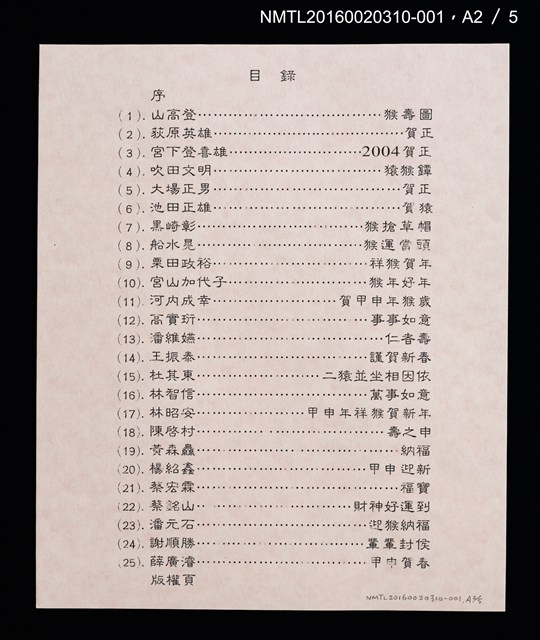 NMTL20160020310-001，A2 / 5
目錄
序
(1). 山高登……猴壽圖
(2). 荻原英雄……賀正
(3). 宮下登喜雄……2004賀正
(4). 吹田文明……猿猴鐸
(5). 大場正男……賀正
(6). 池田正雄……賀猿
(7). 黑崎彰……猴搶草帽
(8). 船水晃……猴運當頭
(9). 栗田政裕……祥猴賀年
(10). 宮山加代子……猴年好年
(11). 河內成幸……賀甲申年猴歲
(12). 高實珩……事事如意
(13). 潘維嬿……仁者壽
(14). 王振泰……謹賀新春
(15). 杜其東……二猿並坐相因依
(16). 林智信……萬事如意
(17). 林昭安……甲申年祥猴賀新年
(18). 陳啓村……壽之申
(19). 黃森鱻……納福
(20). 楊紹鑫……甲申迎新
(21). 蔡宏霖……福寶
(22). 蔡銘山……財神好運到
(23). 潘元石……迎猴納福
(24). 謝順勝……輩輩封侯
(25). 薛廣濬……甲申賀春
版權頁
NMTL20160020310-001, A3